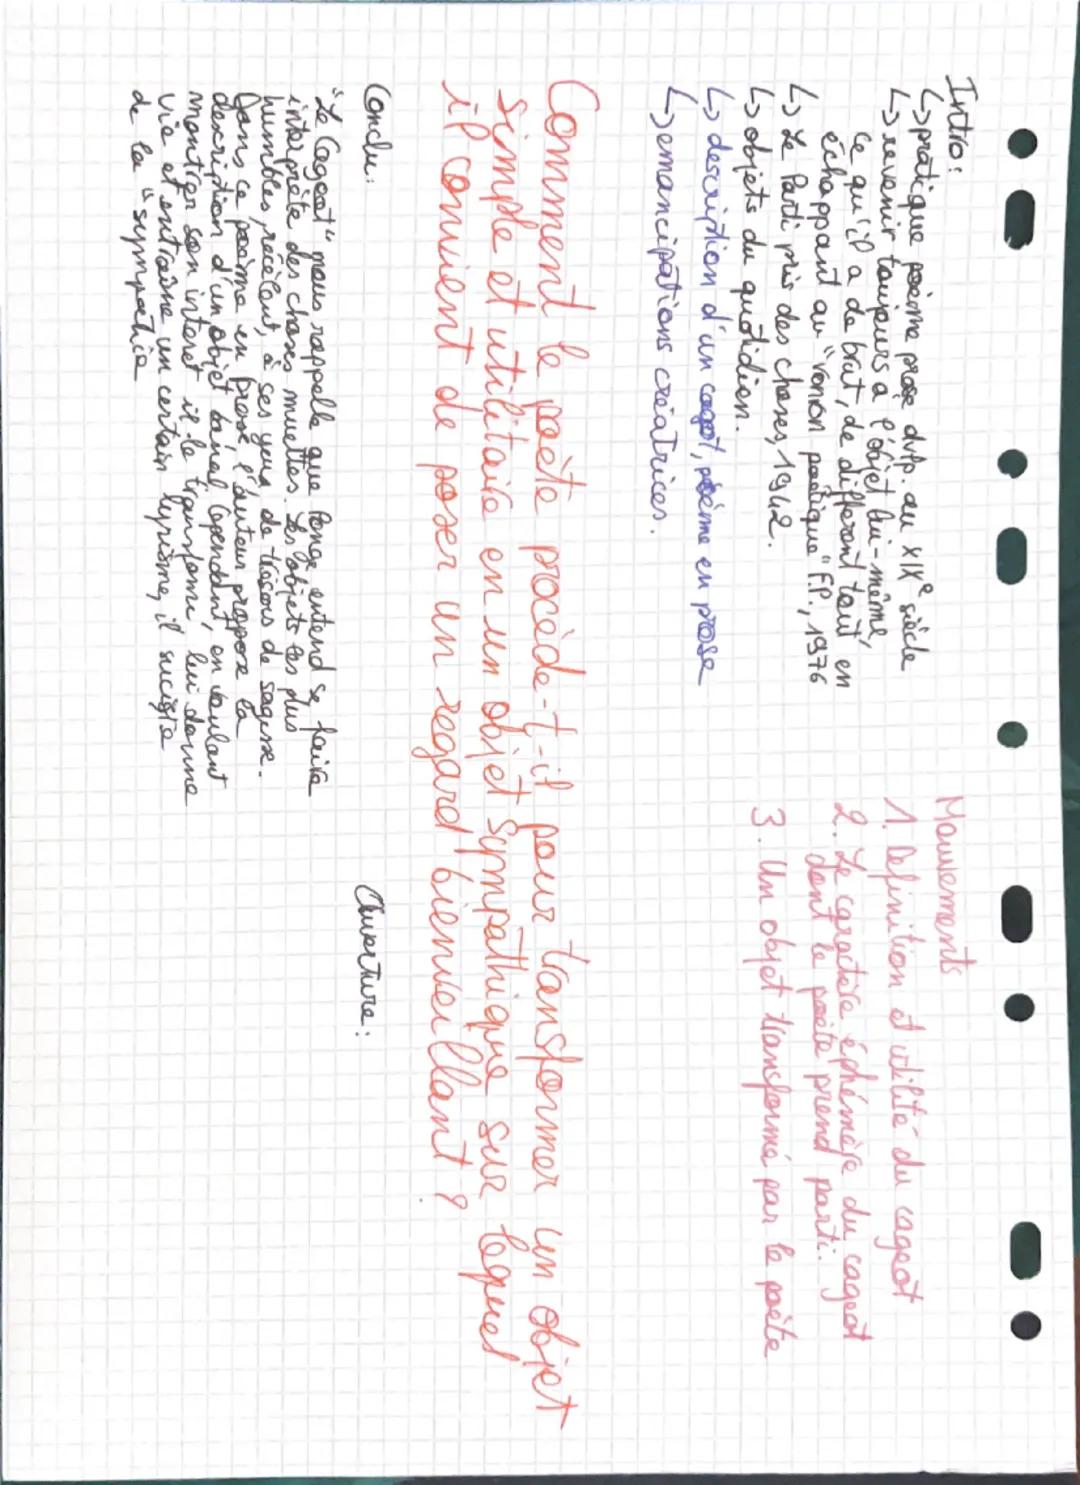 Intro:
↳ pratique poème prose dvlp. au XIXe siècle
↳ revenir toujours à l'objet lui-même,
ce qu'il a de brut, de différent tout en
échappant au "ronron poétique" F.P., 1976
↳ Le Parti pris des choses, 1942.
↳ objets du quotidien.
↳ description d'un cageot, poème en prose
↳ emancipations créatrices.
Mouvements
1. Définition et utilité du cageot
2. Le caractère éphémère du cageot
dont le poète prend parti.
3. Un objet transformé par le poète
Comment le poète procède-t-il pour transformer un objet
simple et utilitaire en un objet sympathique sur lequel
il convient de poser un regard bienveillant?
Conclu:
"Le Cageot" nous rappelle que Ponge entend se faire
interprète des choses muettes. Les objets les plus
humbles, recèlent, à ses yeux de trésors de sagesse.
Dans ce poème en prose, l'auteur propose la
description d'un objet banal cependant, en voulant
montrer son interet il le transforme, lui donne
vie et entraîne un certain lyrisme, il suciste
de la "sympathie
Ouverture: